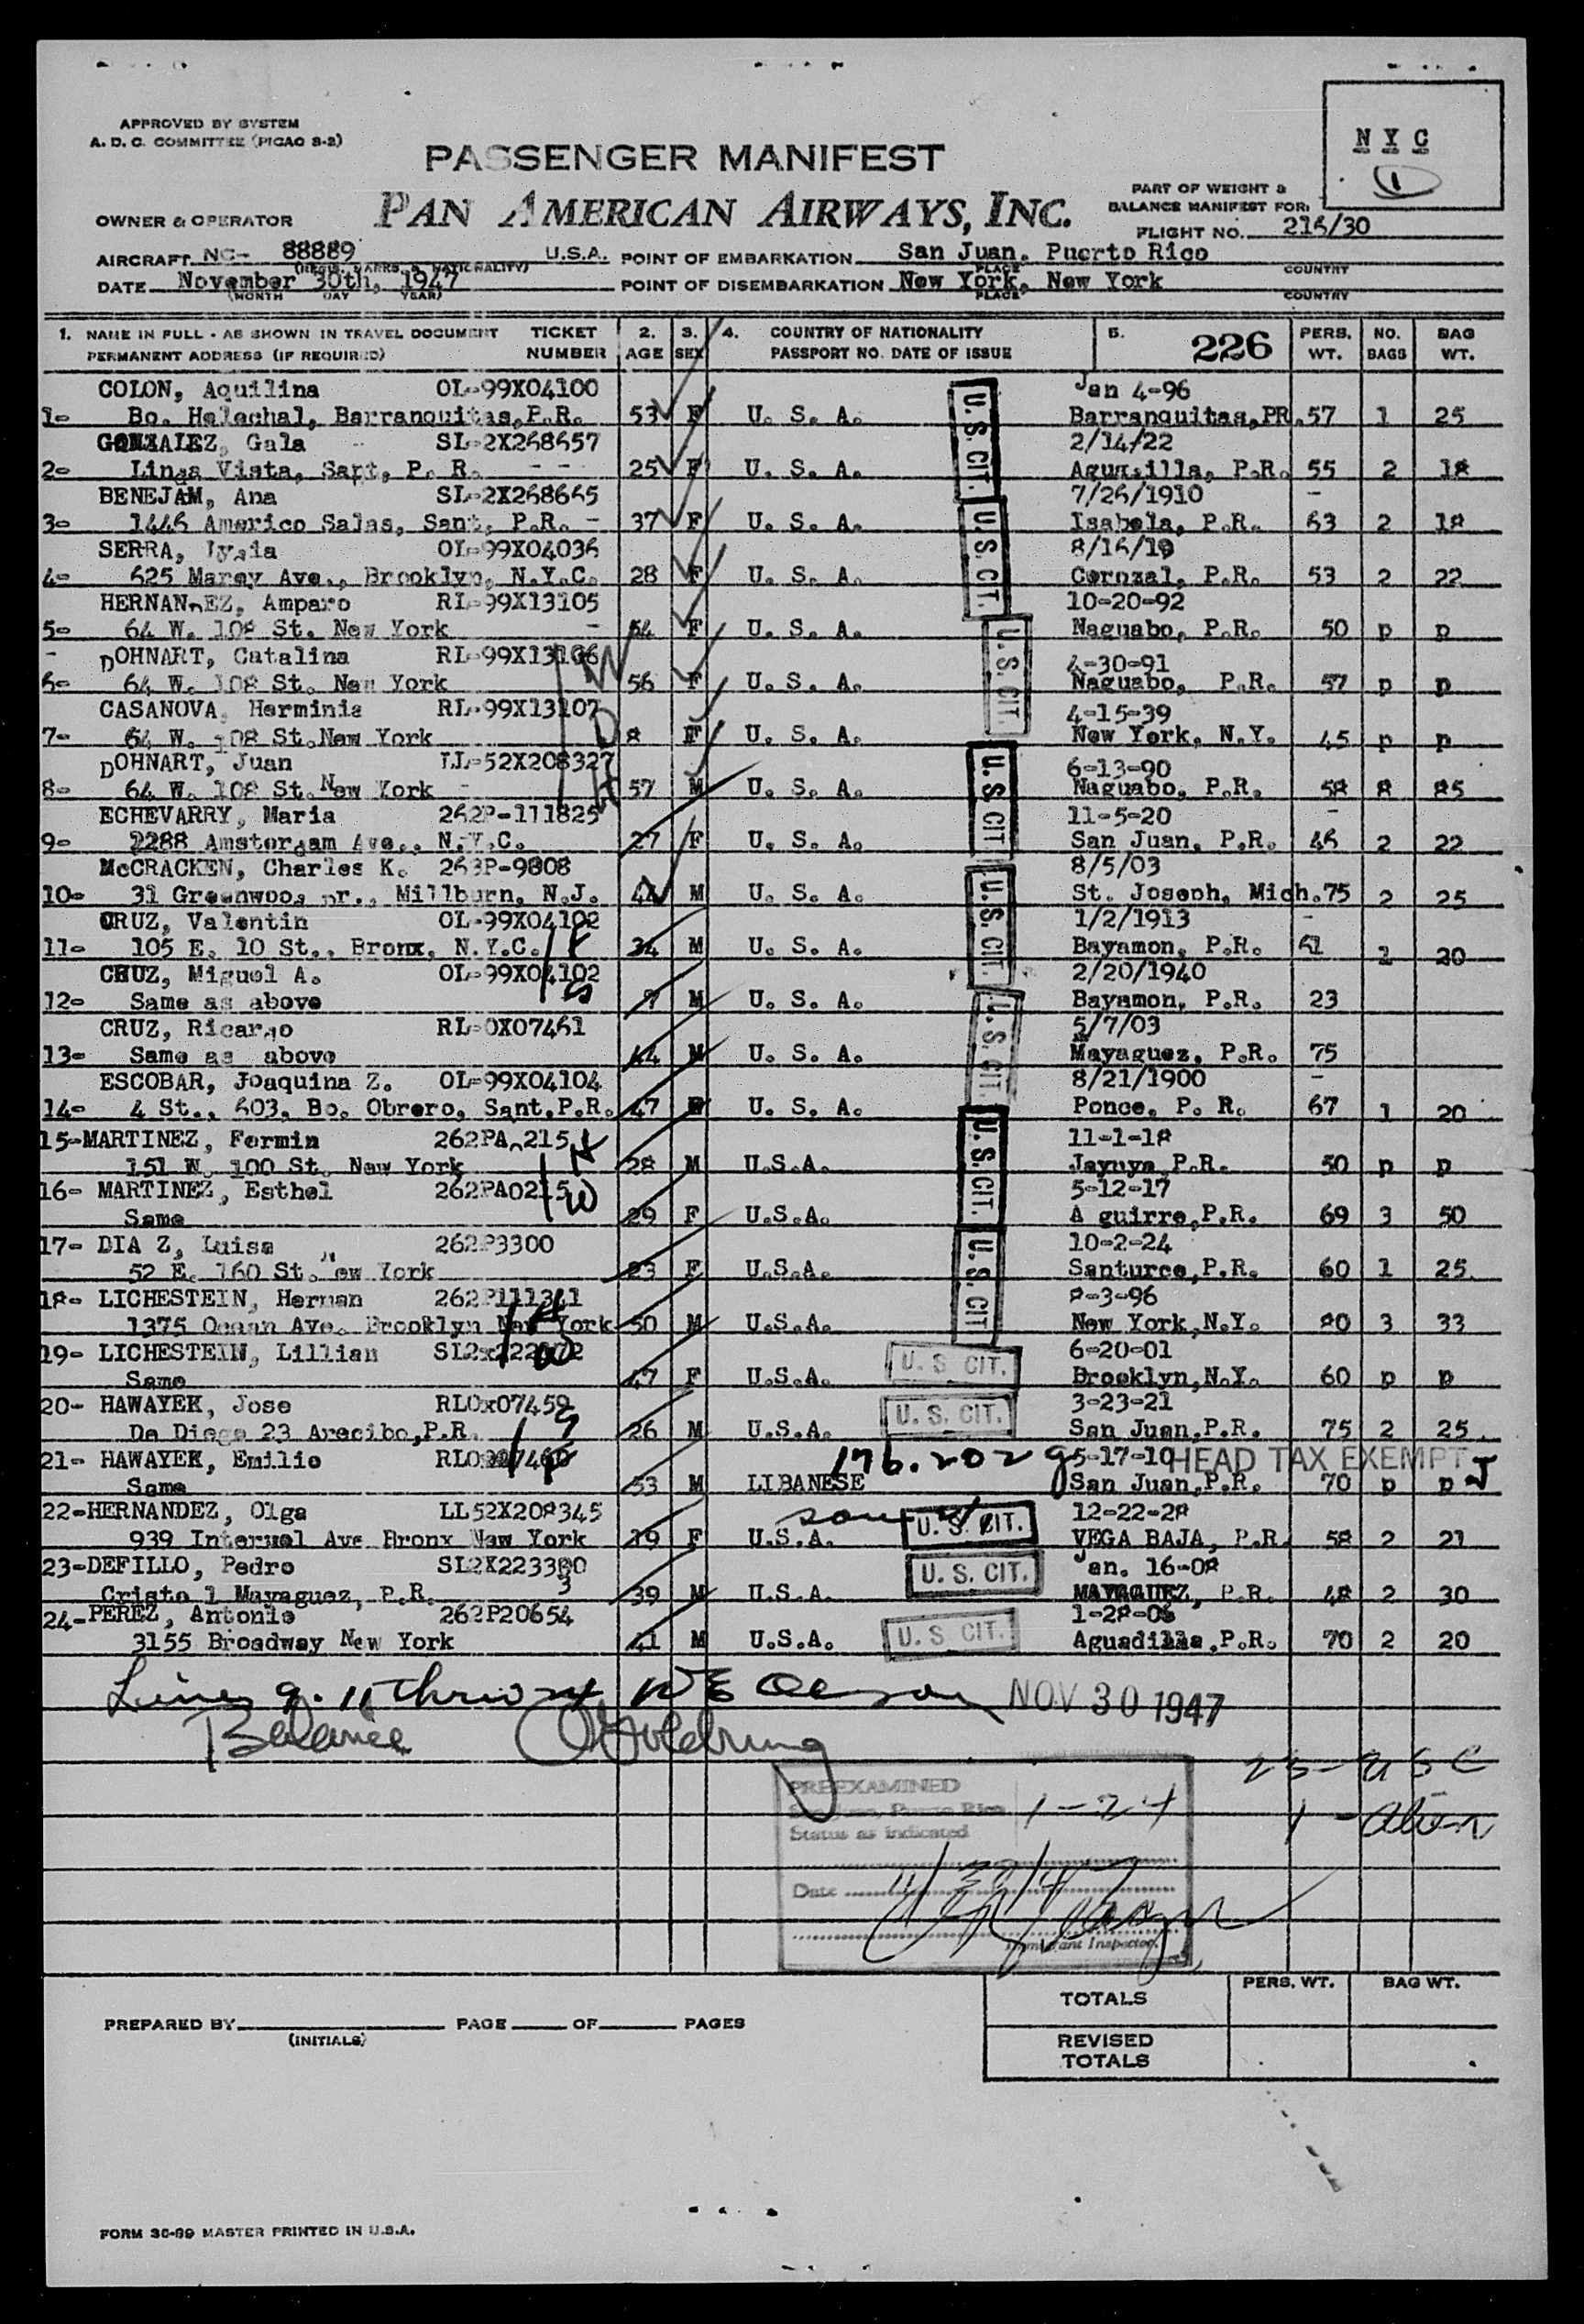 APPROVED BY SYSTEM
A. D. C. COMMITTEE (PICAO 8-2)
N Y C
1
PASSENGER MANIFEST
PAN AMERICAN AIRWAYS, INC.
PART OF WEIGHT &
BALANCE MANIFEST FOR:
OWNER & OPERATOR
FLIGHT NO. 216/30
AIRCRAFT NC- 88889 U.S.A. POINT OF EMBARKATION San Juan, Puerto Rico
PLACE COUNTRY
DATE November 30th, 1947 POINT OF DISEMBARKATION New York, New York
(MONTH DAY YEAR) PLACE COUNTRY
1. NAME IN FULL - AS SHOWN IN TRAVEL DOCUMENT TICKET 2. 3. 4. COUNTRY OF NATIONALITY 5. 226 PERS. NO. BAG
PERMANENT ADDRESS (IF REQUIRED) NUMBER AGE SEX PASSPORT NO. DATE OF ISSUE WT. BAGS WT.
COLON, Aquilina OL-99X04100 Jan 4-96
1- Bo. Helechal, Barranquitas,P.R. 53 F U. S. A. U. S. CIT. Barranquitas,PR. 57 1 25
GONZALEZ, Gala SL-2X268657 2/14/22
2- Linda Vista, Sant, P. R. 25 F U. S. A. P.R. 55 2 18
BENEJAM, Ana SL-2X268665 7/26/1910
3- 1446 Americo Salas, Sant, P.R. 37 F U. S. A. U S CIT. Isabela, P.R. 63 2 18
SERRA, Lysia OL-99X04036 8/16/19
4- 625 Ave., Brooklyn, N.Y.C. 28 F U. S. A. Corozal, P.R. 53 2 22
HERNANDEZ, Amparo RL-99X13105 10-20-92
5- 64 W. 108 St. New York 54 F U. S. A. U. S. CIT. Naguabo, P.R. 50 p p
DOHNART, Catalina RL-99X13106 4-30-91
6- 64 W. 108 St. New York 56 F U. S. A. Naguabo, P.R. 57 p p
CASANOVA, Herminia RL-99X13107 4-15-39
7- 64 W. 108 St.New York 8 F U. S. A. New York, N.Y. 45 p p
DOHNART, Juan LL-52X208327 6-13-90
8- 64 W. 108 St.New York 57 M U. S. A. U. S CIT Naguabo, P.R. 58 8 85
ECHEVARRY, Maria 262P-111825 11-5-20
9- 2288 Amsterdam Ave., N.Y.C. 27 F U. S. A. San Juan, P.R. 46 2 22
McCRACKEN, Charles K. 263P-9808 8/5/03
10- 31 Greenwood Dr., Millburn, N.J. 44 M U. S. A. U. S. CIT. St. Joseph, Mich. 75 2 25
CRUZ, Valentin OL-99X04102 1/2/1913
11- 105 E. 10 St., Bronx, N.Y.C. 34 M U. S. A. Bayamon, P.R. 61 1 20
CRUZ, Miguel A. OL-99X04102 2/20/1940
12- Same as above 7 M U. S. A. U. S. CIT. Bayamon, P.R. 23
CRUZ, Ricardo RL-0X07461 5/7/03
13- Same as above 44 M U. S. A. Mayaguez, P.R. 75
ESCOBAR, Joaquina Z. OL-99X04104 8/21/1900
14- 4 St., 603, Bo. Obrero, Sant,P.R. 47 F U. S. A. Ponce, P. R. 67 1 20
15-MARTINEZ, Fermin 262PA0215 11-1-18
151 W. 100 St. New York 28 M U.S.A. U. S. CIT. Jayuya,P.R. 50 p p
16- MARTINEZ, Esthel 262PA0215 5-12-17
Same 29 F U.S.A. A guirre,P.R. 69 3 50
17- DIA Z, Luisa 262P3300 10-2-24
52 E. 160 St. New York 23 F U.S.A. U. S. CIT Santurce,P.R. 60 1 25
18- LICHESTEIN, Herman 262P111341 8-3-96
1375 Ocean Ave. Brooklyn New York 50 M U.S.A. New York,N.Y. 80 3 33
19- LICHESTEIN, Lillian 6-20-01
Same 47 F U.S.A. U. S CIT. Brooklyn,N.Y. 60 p p
20- HAWAYEK, Jose RLOx07459 3-23-21
De Diego 23 Arecibo,P.R. 26 M U.S.A. U. S. CIT. San Juan,P.R. 75 2 25
21- HAWAYEK, Emilio 176.202 5-17-10 HEAD TAX EXEMPT
Same 53 M LIBANESE San Juan,P.R. 70 p p J
22-HERNANDEZ, Olga LL52X208345 12-22-28
939 Ave Bronx New York 19 F U.S.A. U. S. CIT. VEGA BAJA, P.R. 58 2 21
23-DEFILLO, Pedro SL2X223380 Jan. 16-08
Cristo 1 Mayaguez, P.R. 3 39 M U.S.A. U. S. CIT. MAYAGUEZ, P.R. 48 2 30
24-PEREZ, Antonio 262P20654 1-28-06
3155 Broadway New York 41 M U.S.A. U. S CIT. Aguadilla,P.R. 70 2 20
Lines 9. 11 thru 24 NOV 30 1947
Balance
23- U S C
1 - Alien
PREEXAMINED
San Juan, Puerto Rico 1-24
Status as indicated
Date 11/30/47
Immigrant Inspector.
TOTALS PERS. WT. BAG WT.
PREPARED BY PAGE OF PAGES
(INITIALS)
REVISED
TOTALS
FORM 30-99 MASTER PRINTED IN U.S.A.